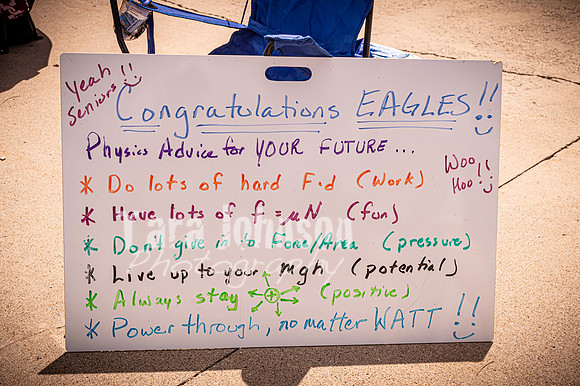 Yeah !!
Seniors
Congratulations EAGLES!!
Physics Advice for YOUR FUTURE...
Woo
Hoo!!
* Do lots of hard F·d (work)
* Have lots of f=μN (fun)
* Don't give in to Force/Area (pressure)
* Live up to your mgh (potential)
* Always stay + (positive)
* Power through, no matter WATT !!
Lara Johnson
Photography